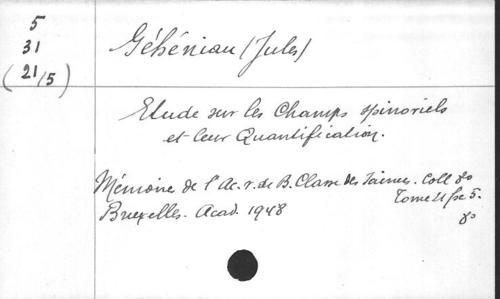 5
31
(21/5)
Géhéniau (Jules)
Etude sur les Champs spinoriels
et leur Quantification.
Mémoire de l'Ac. r. de B. Classe des Sciences. Coll 8°
Tome 21 fsc 5.
Bruxelles. Acad. 1948
8°